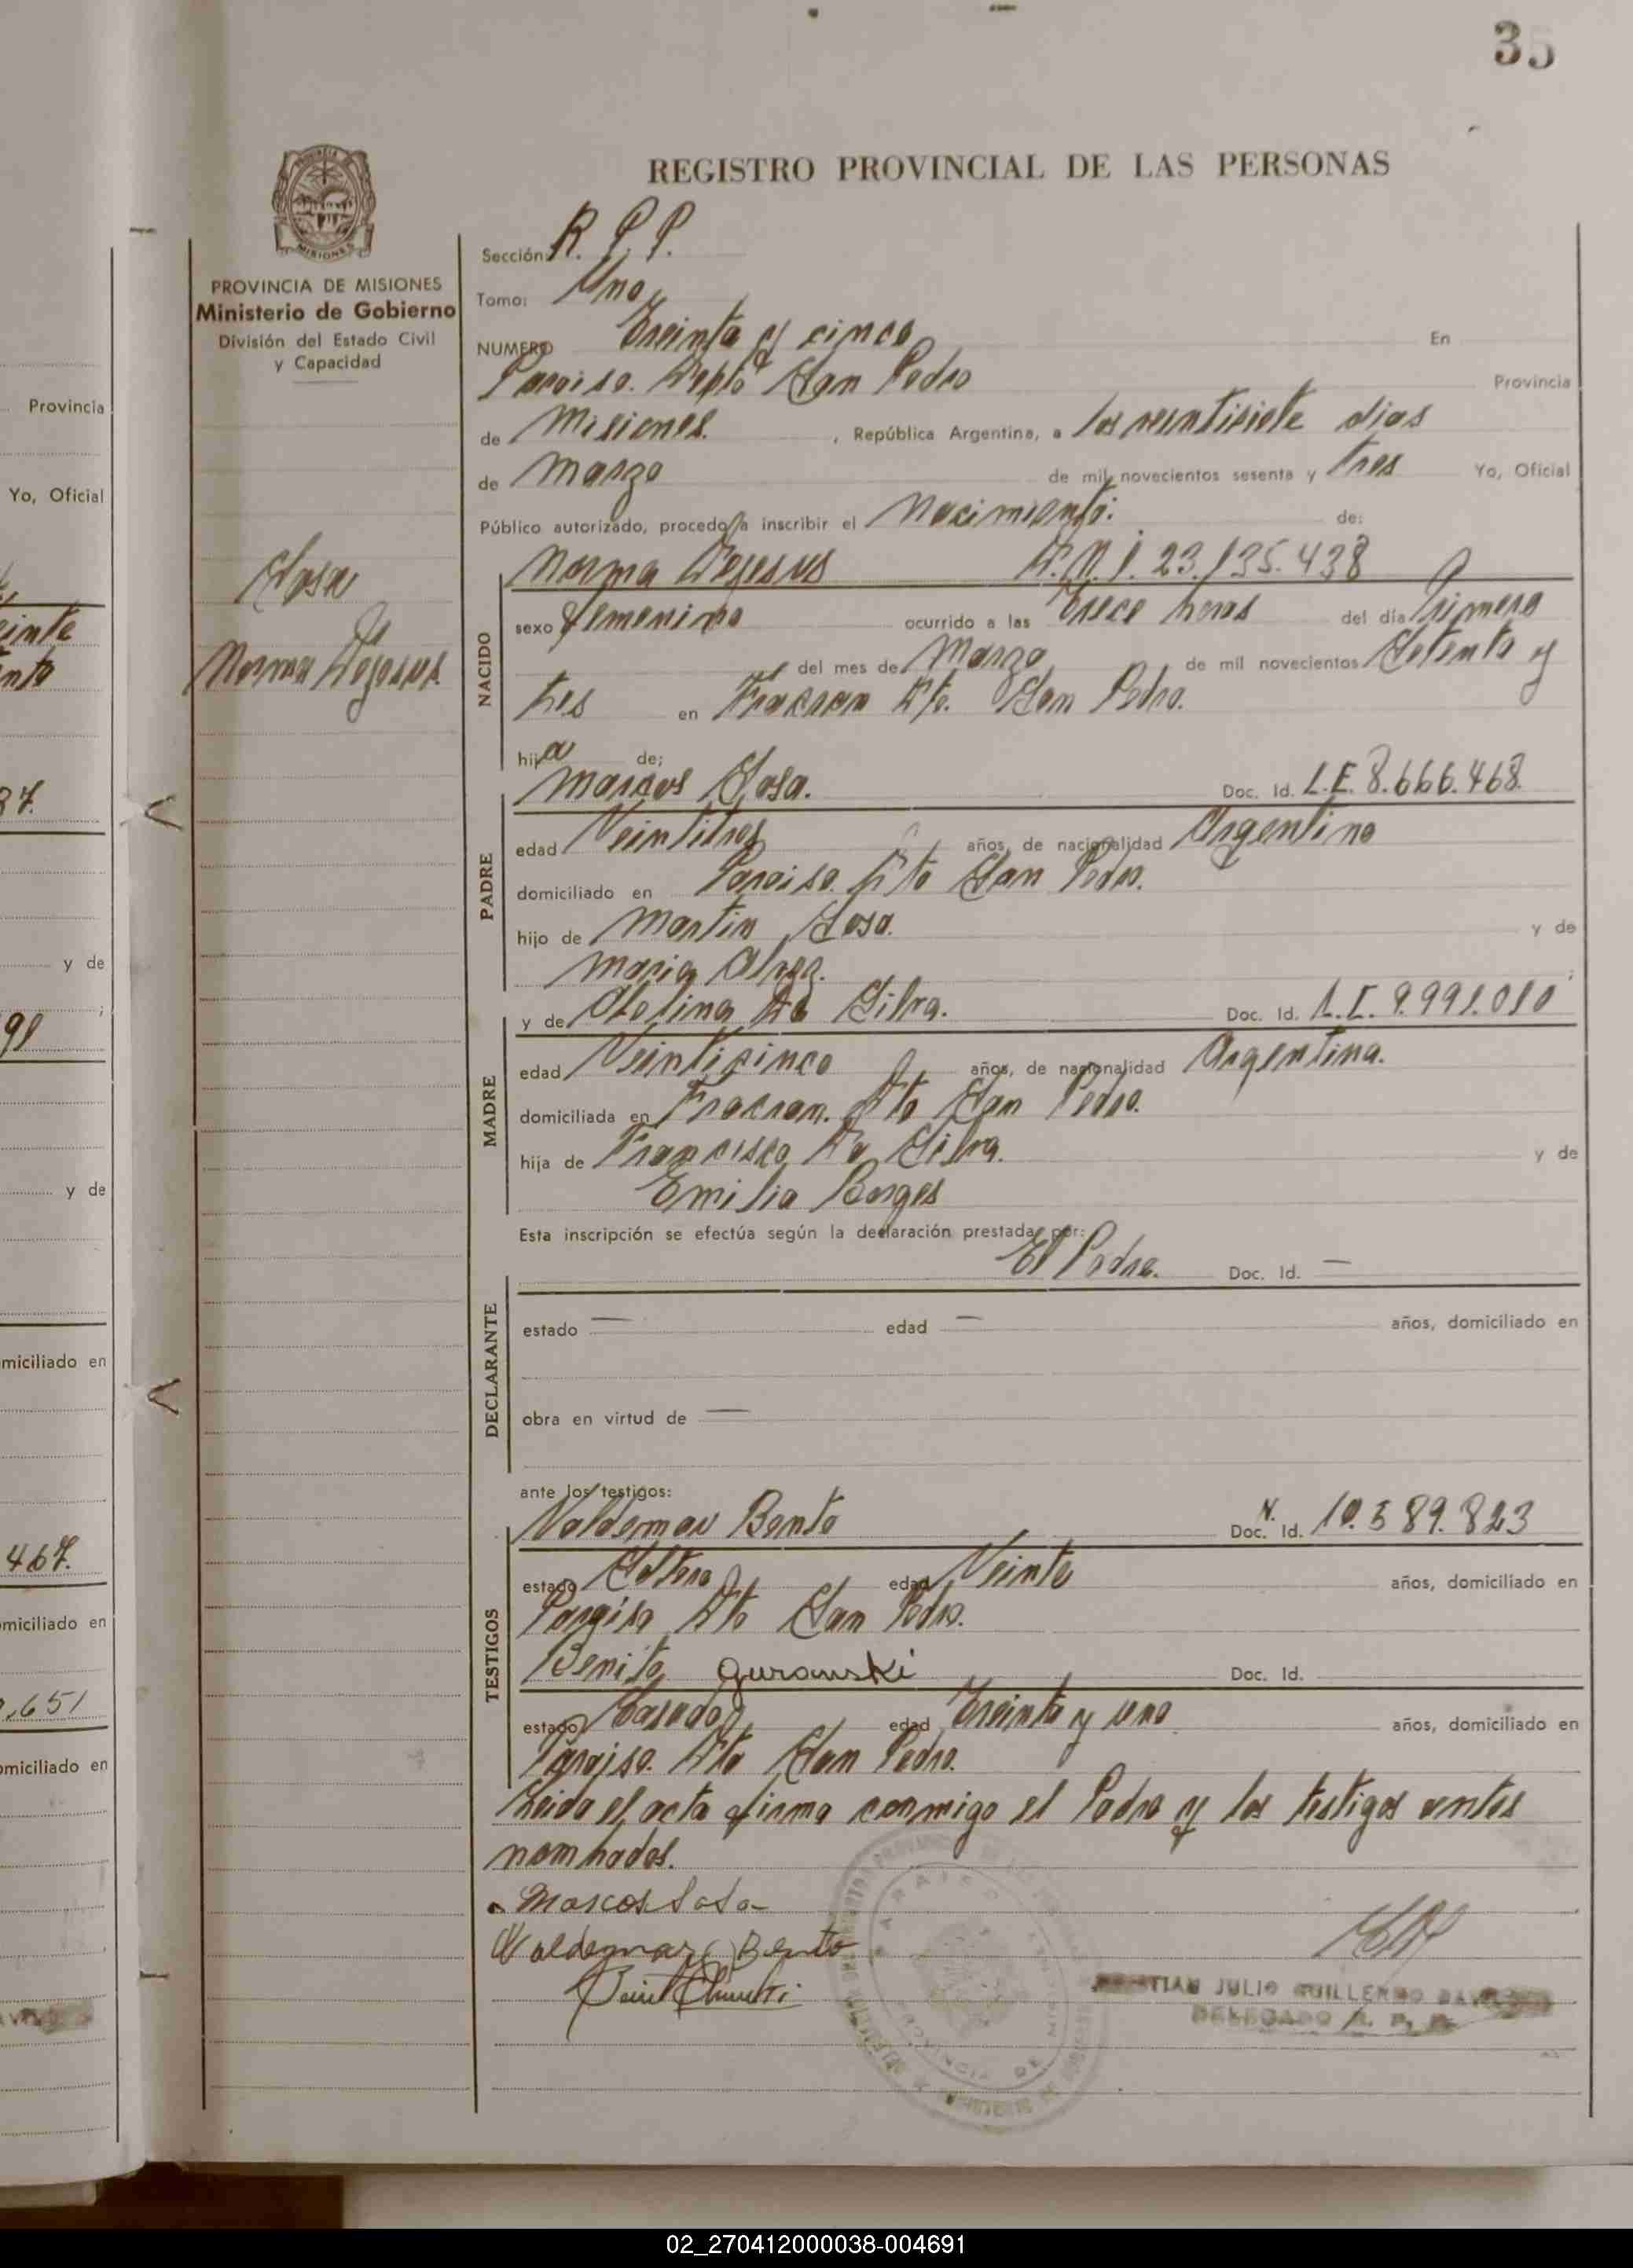 35
REGISTRO PROVINCIAL DE LAS PERSONAS
PROVINCIA DE MISIONES
Ministerio de Gobierno
División del Estado Civil
y Capacidad
Sosa
Norma Dejesus
Sección: R. P. P.
Tomo: Uno
NUMERO Treinta y cinco En
Paraiso. Depto San Pedro Provincia
de Misiones. , República Argentina, a los veintisiete dias
de Marzo de mil novecientos sesenta y tres Yo, Oficial
Público autorizado, procedo a inscribir el Nacimiento: de:
Norma Dejesus D.N.I. 23.135.438
NACIDO
sexo femenino ocurrido a las Trece horas del día Primero
del mes de Marzo de mil novecientos Setenta y
tres en Fracran Dto. San Pedro.
hija de;
Marcos Sosa. Doc. Id. L.E. 8.666.468
PADRE
edad Veintitres años, de nacionalidad Argentino
domiciliado en Paraiso Dto San Pedro.
hijo de Martin Sosa. y de
Maria ;
y de Da Silva. Doc. Id. L.C. 9.991.010
MADRE
edad Veinticinco años, de nacionalidad Argentina.
domiciliada en Fracran. Dto San Pedro.
hija de Francisco Da Silva. y de
Emilia Borges
Esta inscripción se efectúa según la declaración prestada por:
El Padre. Doc. Id. —
DECLARANTE
estado — edad — años, domiciliado en
obra en virtud de —
ante los testigos:
Valdemar Bento Doc. Id. N. 10.589.823
TESTIGOS
estado Soltero edad Veinte años, domiciliado en
Paraiso Dto San Pedro.
Benito Guranski Doc. Id.
estado Casado edad Treinta y uno años, domiciliado en
Paraiso. Dto San Pedro.
Leida el acta firma conmigo el Padre y los testigos antes
nombrados.
Marcos Sosa
Valdemar Bento
JULIO GUILLERMO
DELEGADO R. P. P.
Provincia
Yo, Oficial
einte
37.
y de
;
91
y de
miciliado en
467.
miciliado en
.651
omiciliado en
02_270412000038-004691